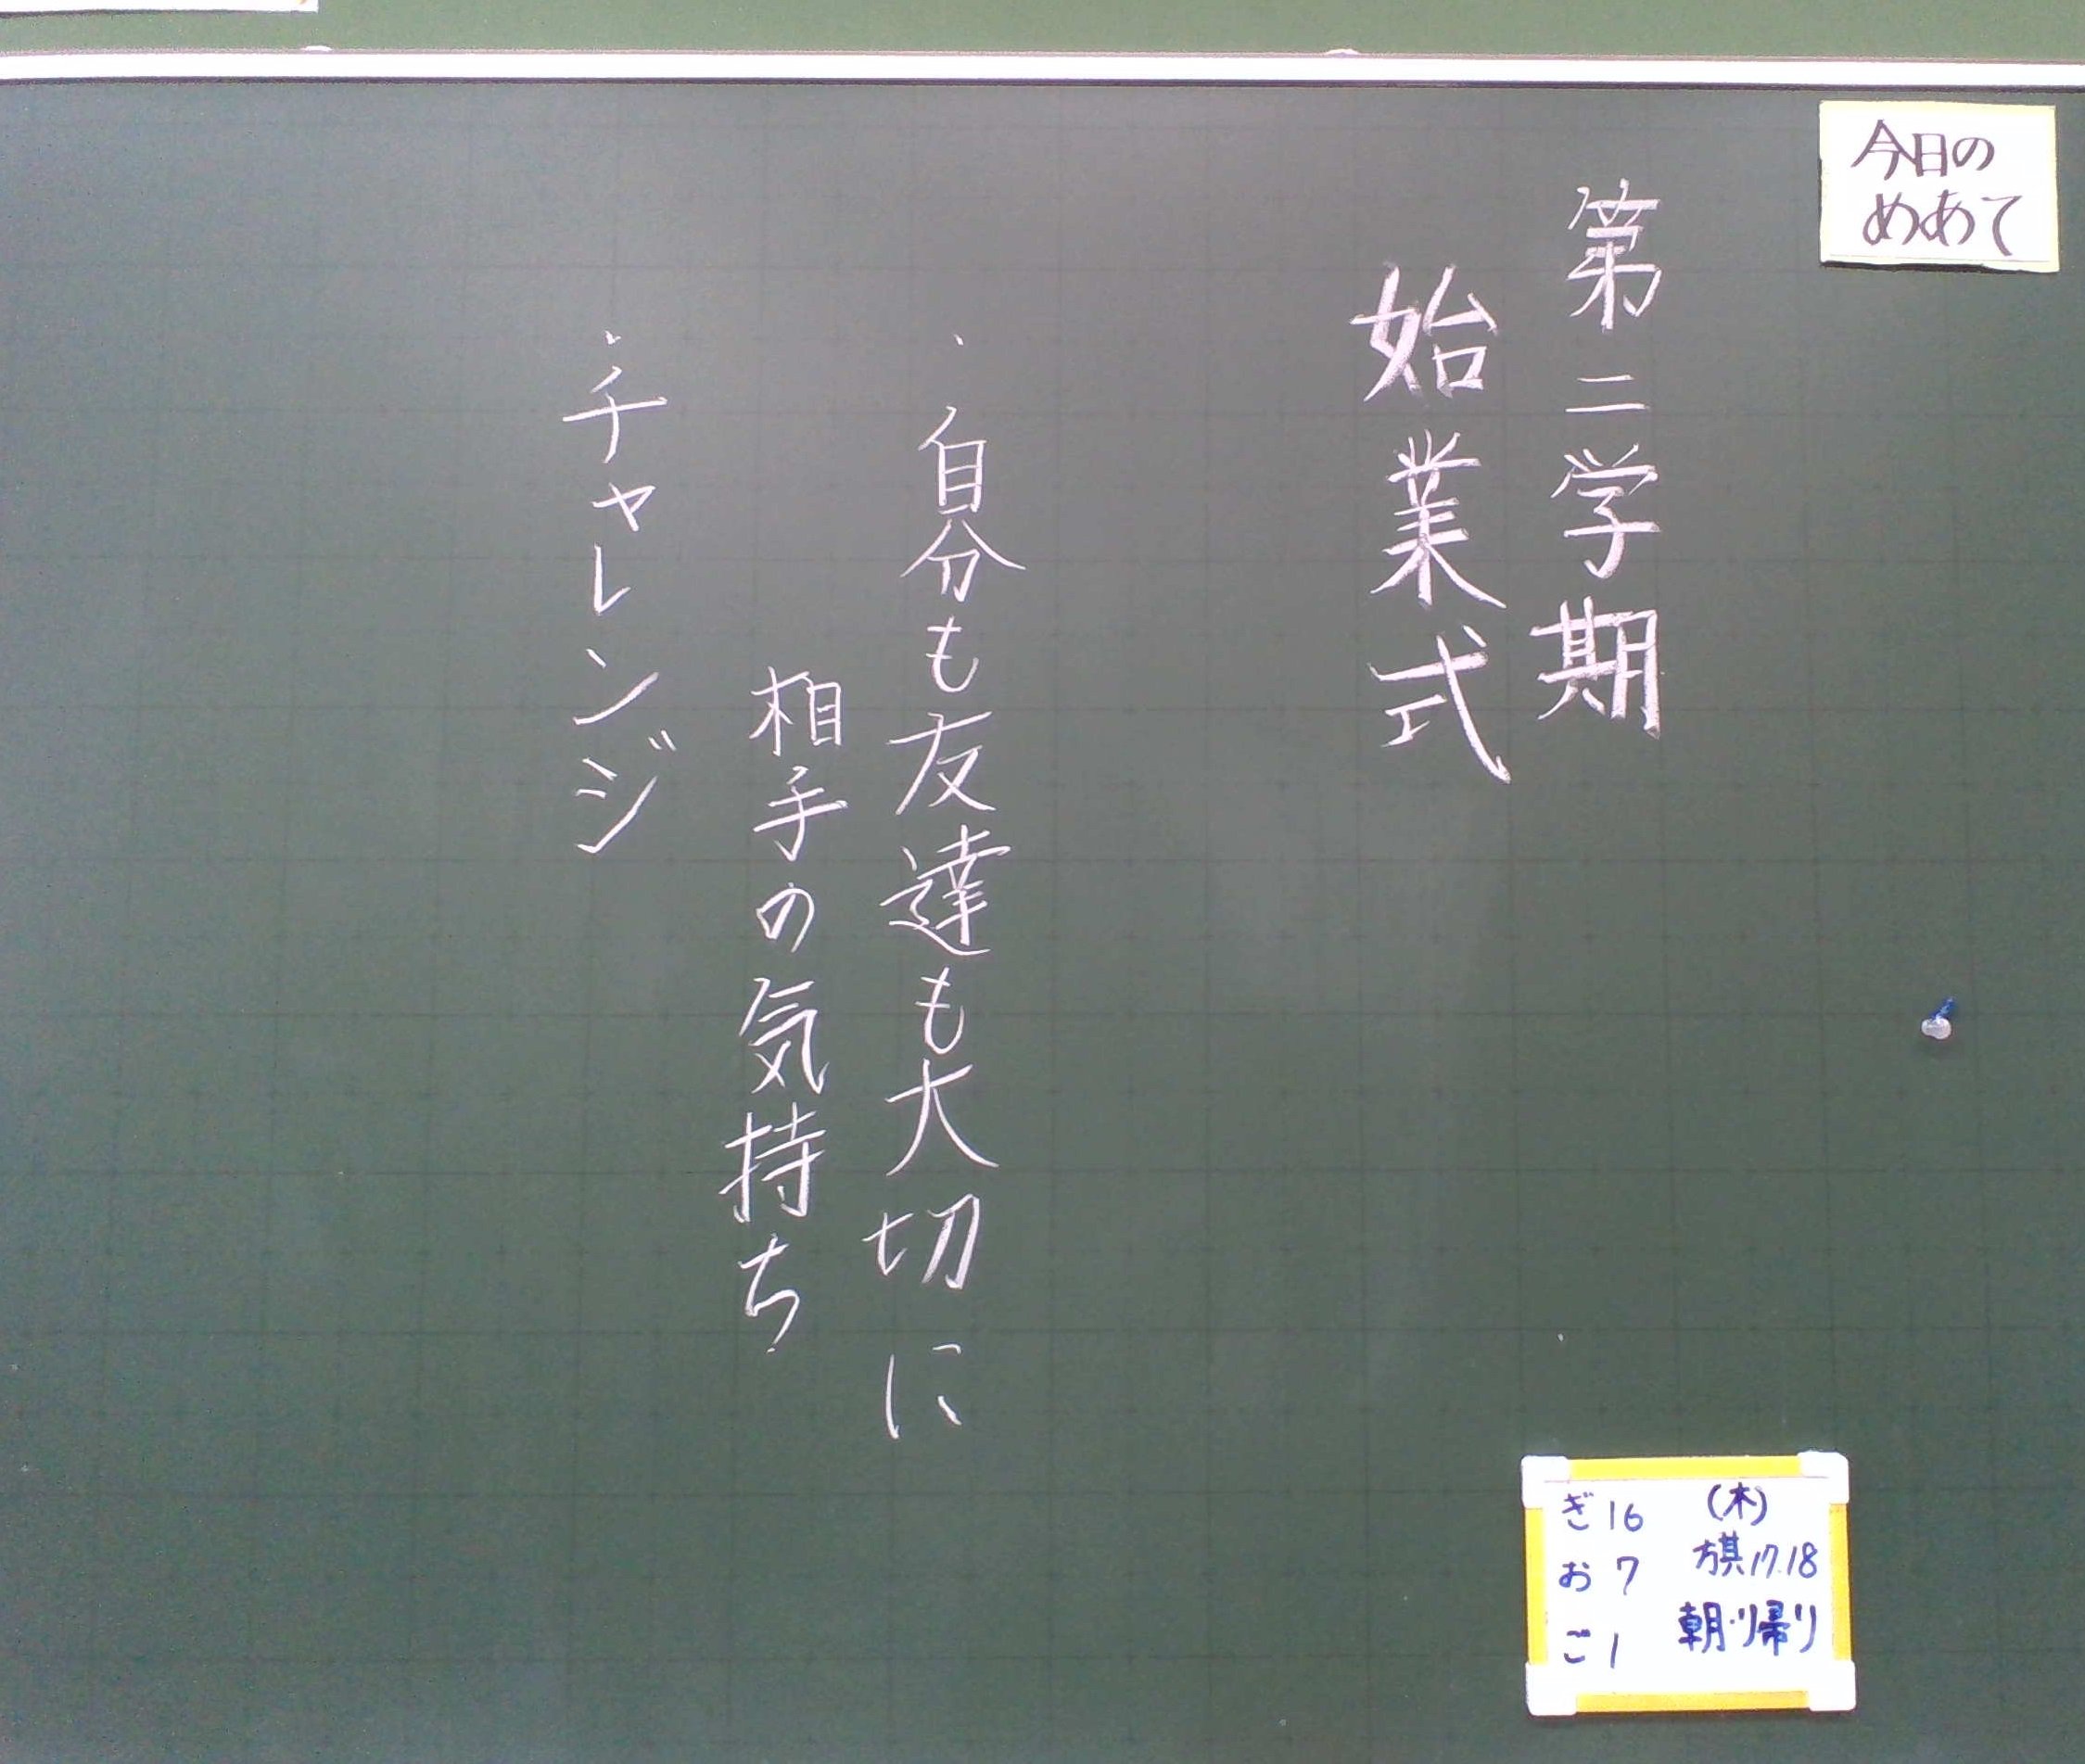 今日の
めあて
第二学期
始業式
・自分も友達も大切に
相手の気持ち
・チャレンジ
(木)
旗17.18
朝・帰り
ぎ16
お7
ご1